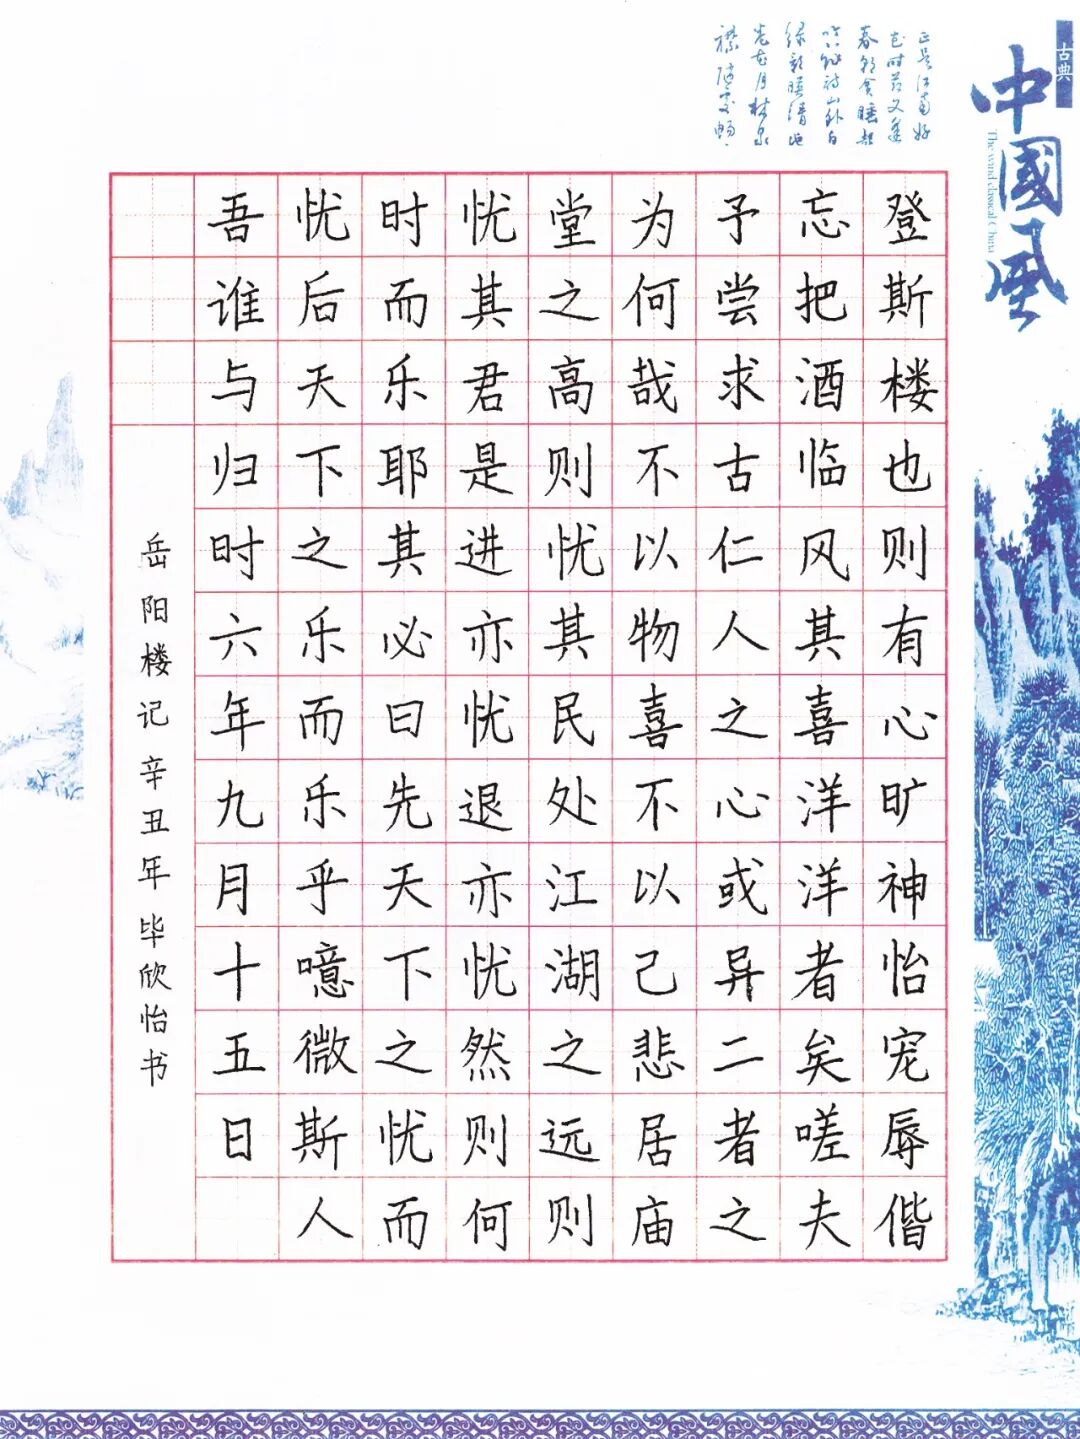 古典
中國風
The wind classical China
登斯楼也则有心旷神怡宠辱偕
忘把酒临风其喜洋洋者矣嗟夫
予尝求古仁人之心或异二者之
为何哉不以物喜不以己悲居庙
堂之高则忧其民处江湖之远则
忧其君是进亦忧退亦忧然则何
时而乐耶其必曰先天下之忧而
忧后天下之乐而乐乎噫微斯人
吾谁与归时六年九月十五日
岳阳楼记辛丑年毕欣怡书